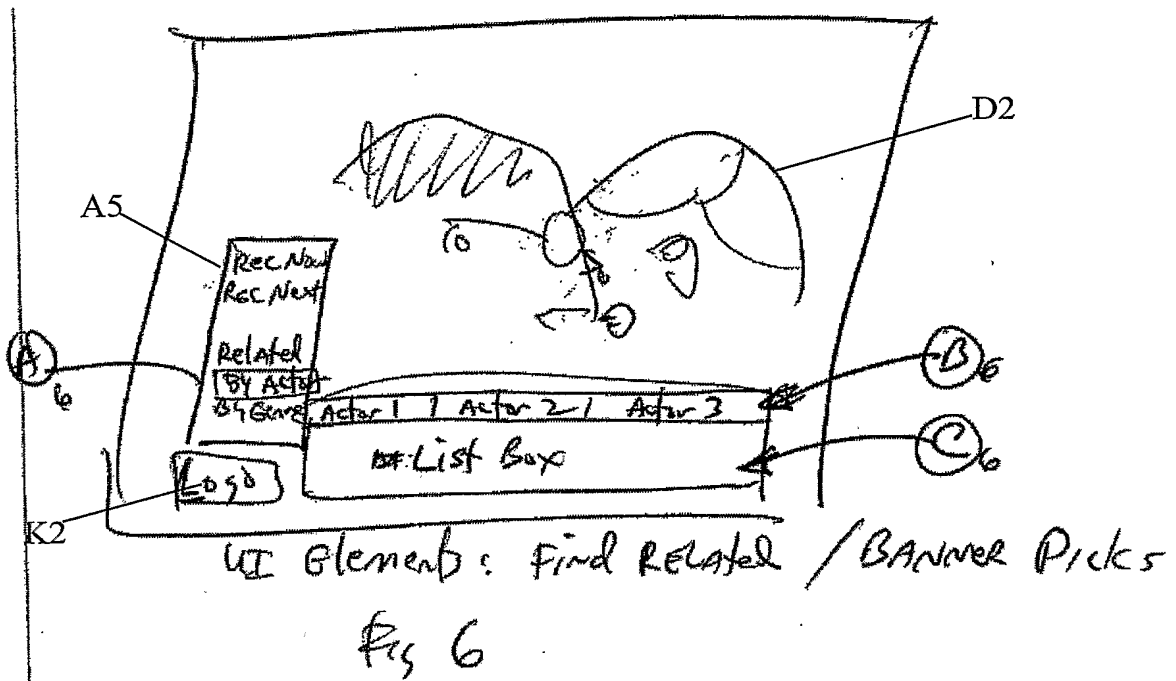 D2
A5
Rec Now
Rec Next
Related
A6
By Actor
B6
By Genre
Actor 1 | Actor 2 | Actor 3
List Box
C6
Logo
K2
UI Elements: Find RELATED / BANNER PICKS
Fig 6